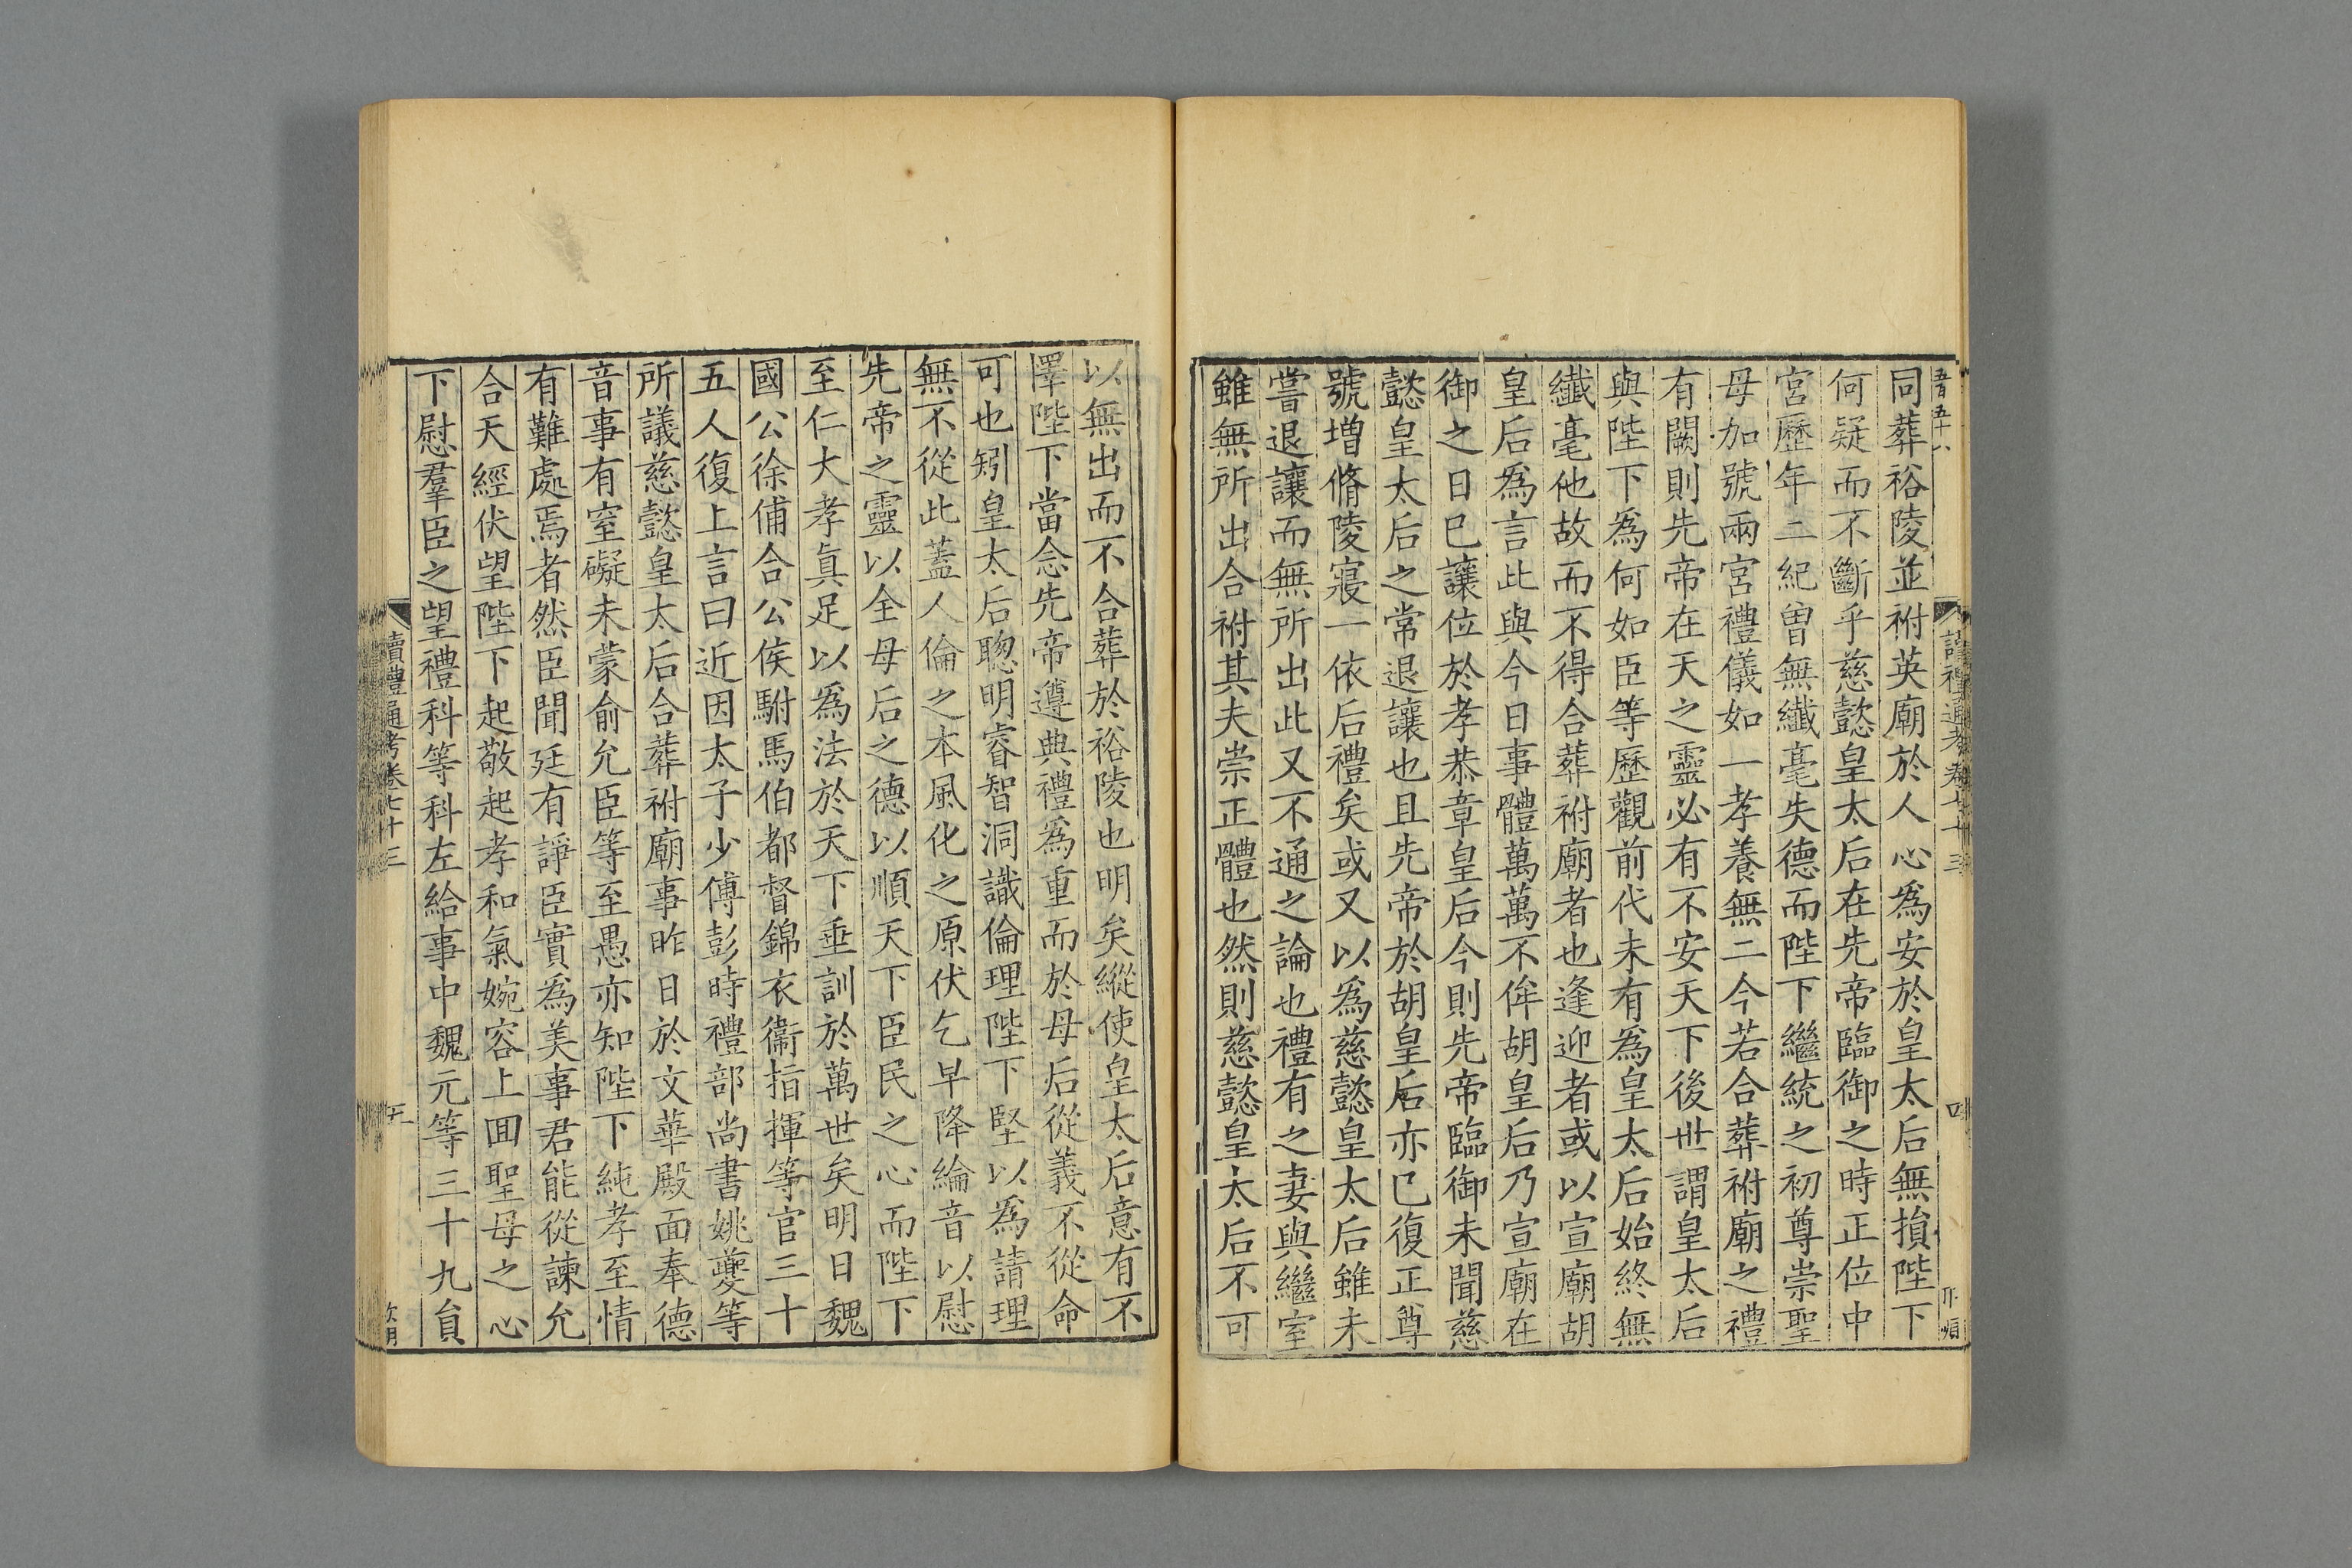 同葬裕陵並祔英廟於人心爲安於皇太后無損陛下
何疑而不斷乎慈懿皇太后在先帝臨御之時正位中
宮歷年二紀曽無纖毫失德而陛下繼統之初尊崇聖
母加號兩宮禮儀如一孝養無二今若合葬祔廟之禮
有闕則先帝在天之靈必有不安天下後世謂皇太后
與陛下爲何如臣等歷觀前代未有爲皇太后始終無
纖毫他故而不得合葬祔廟者也逢迎者或以宣廟胡
皇后爲言此與今日事體萬萬不侔胡皇后乃宣廟在
御之日巳讓位於孝恭章皇后今則先帝臨御未聞慈
懿皇太后之常退讓也且先帝於胡皇后亦已復正尊
號增脩陵寢一依后禮矣或又以爲慈懿皇太后雖未
嘗退讓而無所出此又不通之論也禮有之妻與繼室
雖無所出合祔其夫崇正體也然則慈懿皇太后不可
以無出而不合葬於裕陵也明矣縱使皇太后意有不
懌陛下當念先帝遵典禮爲重而於母后從義不從命
可也矧皇太后聰明睿智洞識倫理陛下堅以爲請理
無不從此蓋人倫之本風化之原伏乞早降綸音以慰
先帝之靈以全母后之德以順天下臣民之心而陛下
至仁大孝眞足以爲法於天下垂訓於萬世矣明日魏
國公徐俌合公侯駙馬伯都督錦衣衞指揮等官三十
五人復上言曰近因太子少傅彭時禮部尚書姚夔等
所議慈懿皇太后合葬祔廟事昨日於文華殿面奉德
音事有窒礙未蒙俞允臣等至愚亦知陛下純孝至情
有難處焉者然臣聞廷有諍臣實爲美事君能從諫允
合天經伏望陛下起敬起孝和氣婉容上囬聖母之心
下慰羣臣之望禮科等科左給事中魏元等三十九員
讀禮通考卷七十三
五